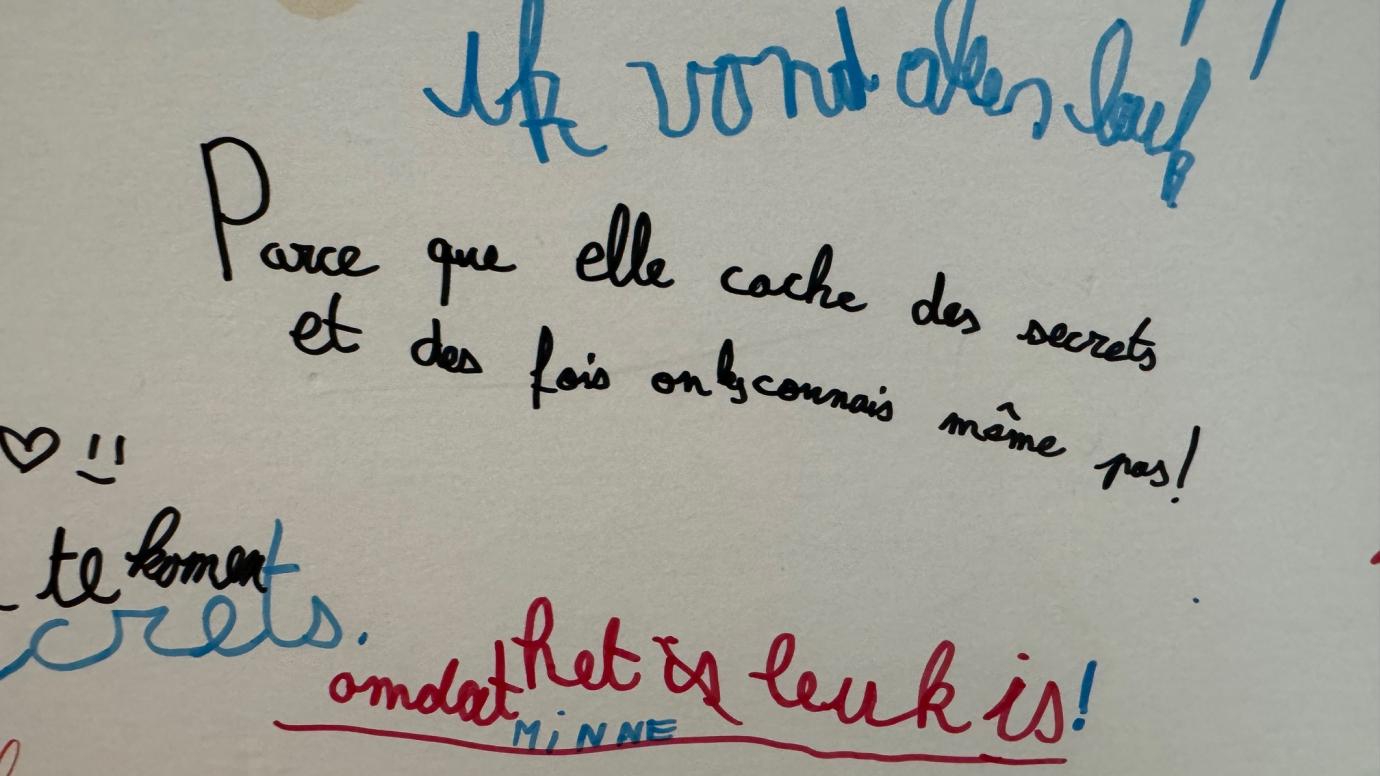 ik vond alles leuk
Parce que elle cache des secrets
et des fois on les connais même pas!
te komen
crets.
omdat het is leuk is!
MiNNE